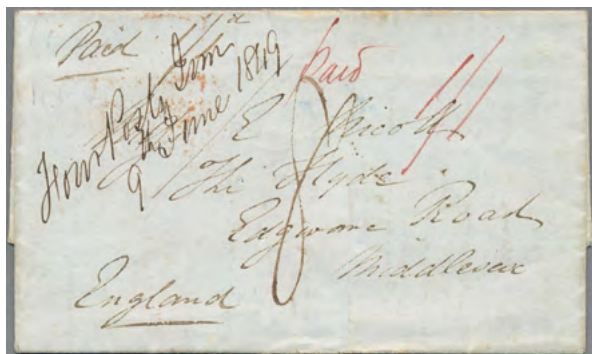 Paid
Paid 1/-
9th June 1849
E Nicoll
The Hyde
Edgware Road
Middlesex
England